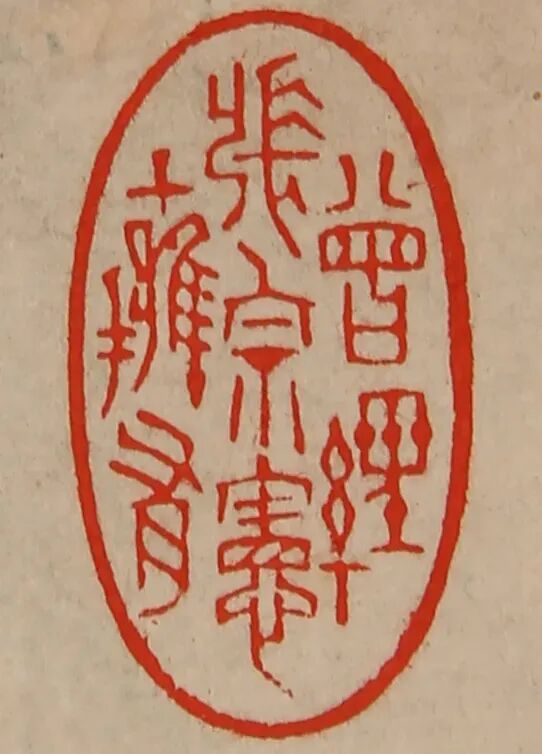 曾經
張宗憲
擁有